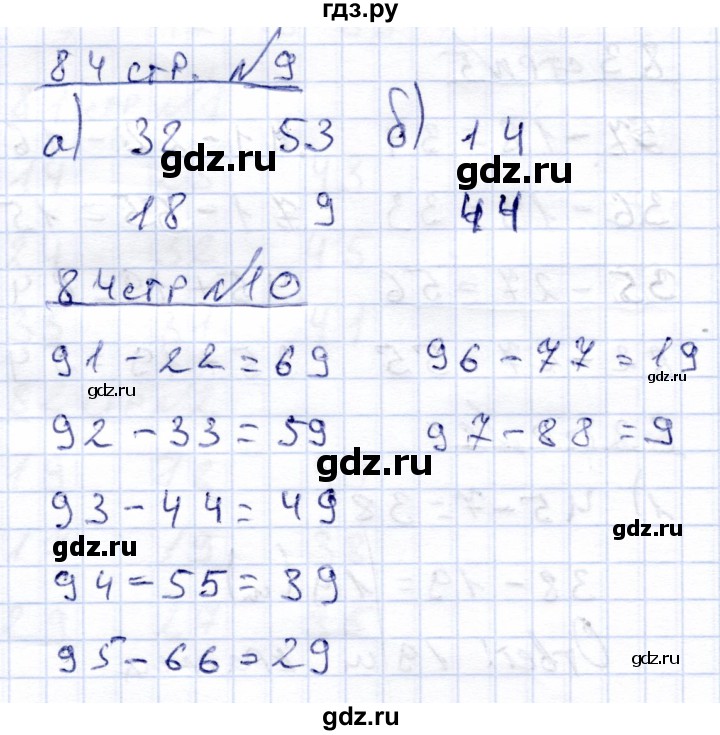 гдз.ру
84 стр. №9
а) 32 53 б) 14
gdz.ru gdz.ru
18 9 44
84 стр №10
91-22=69 96-77=19
gdz.ru gdz.ru
92-33=59 97-88=9
gdz.ru
93-44=49
gdz.ru gdz.ru
94=55=39
95-66=29
gdz.ru
gdz.ru